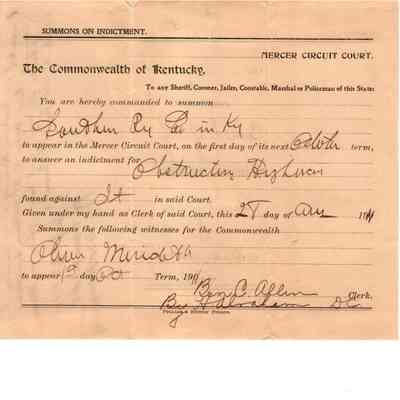 SUMMONS ON INDICTMENT.
MERCER CIRCUIT COURT.
The Commonwealth of Kentucky,
To any Sheriff, Coroner, Jailer, Constable, Marshal or Policeman of this State:
You are hereby commanded to summon
Southern Ry Co in Ky
to appear in the Mercer Circuit Court, on the first day of its next Octbr term,
to answer an indictment for Obstructing Highway
found against It in said Court.
Given under my hand as Clerk of said Court, this 28 day of Aug 1911
Summons the following witnesses for the Commonwealth
Oliver Meredith
to appear 1st day Oct Term, 190
Ben C. Allen Clerk.
By D C